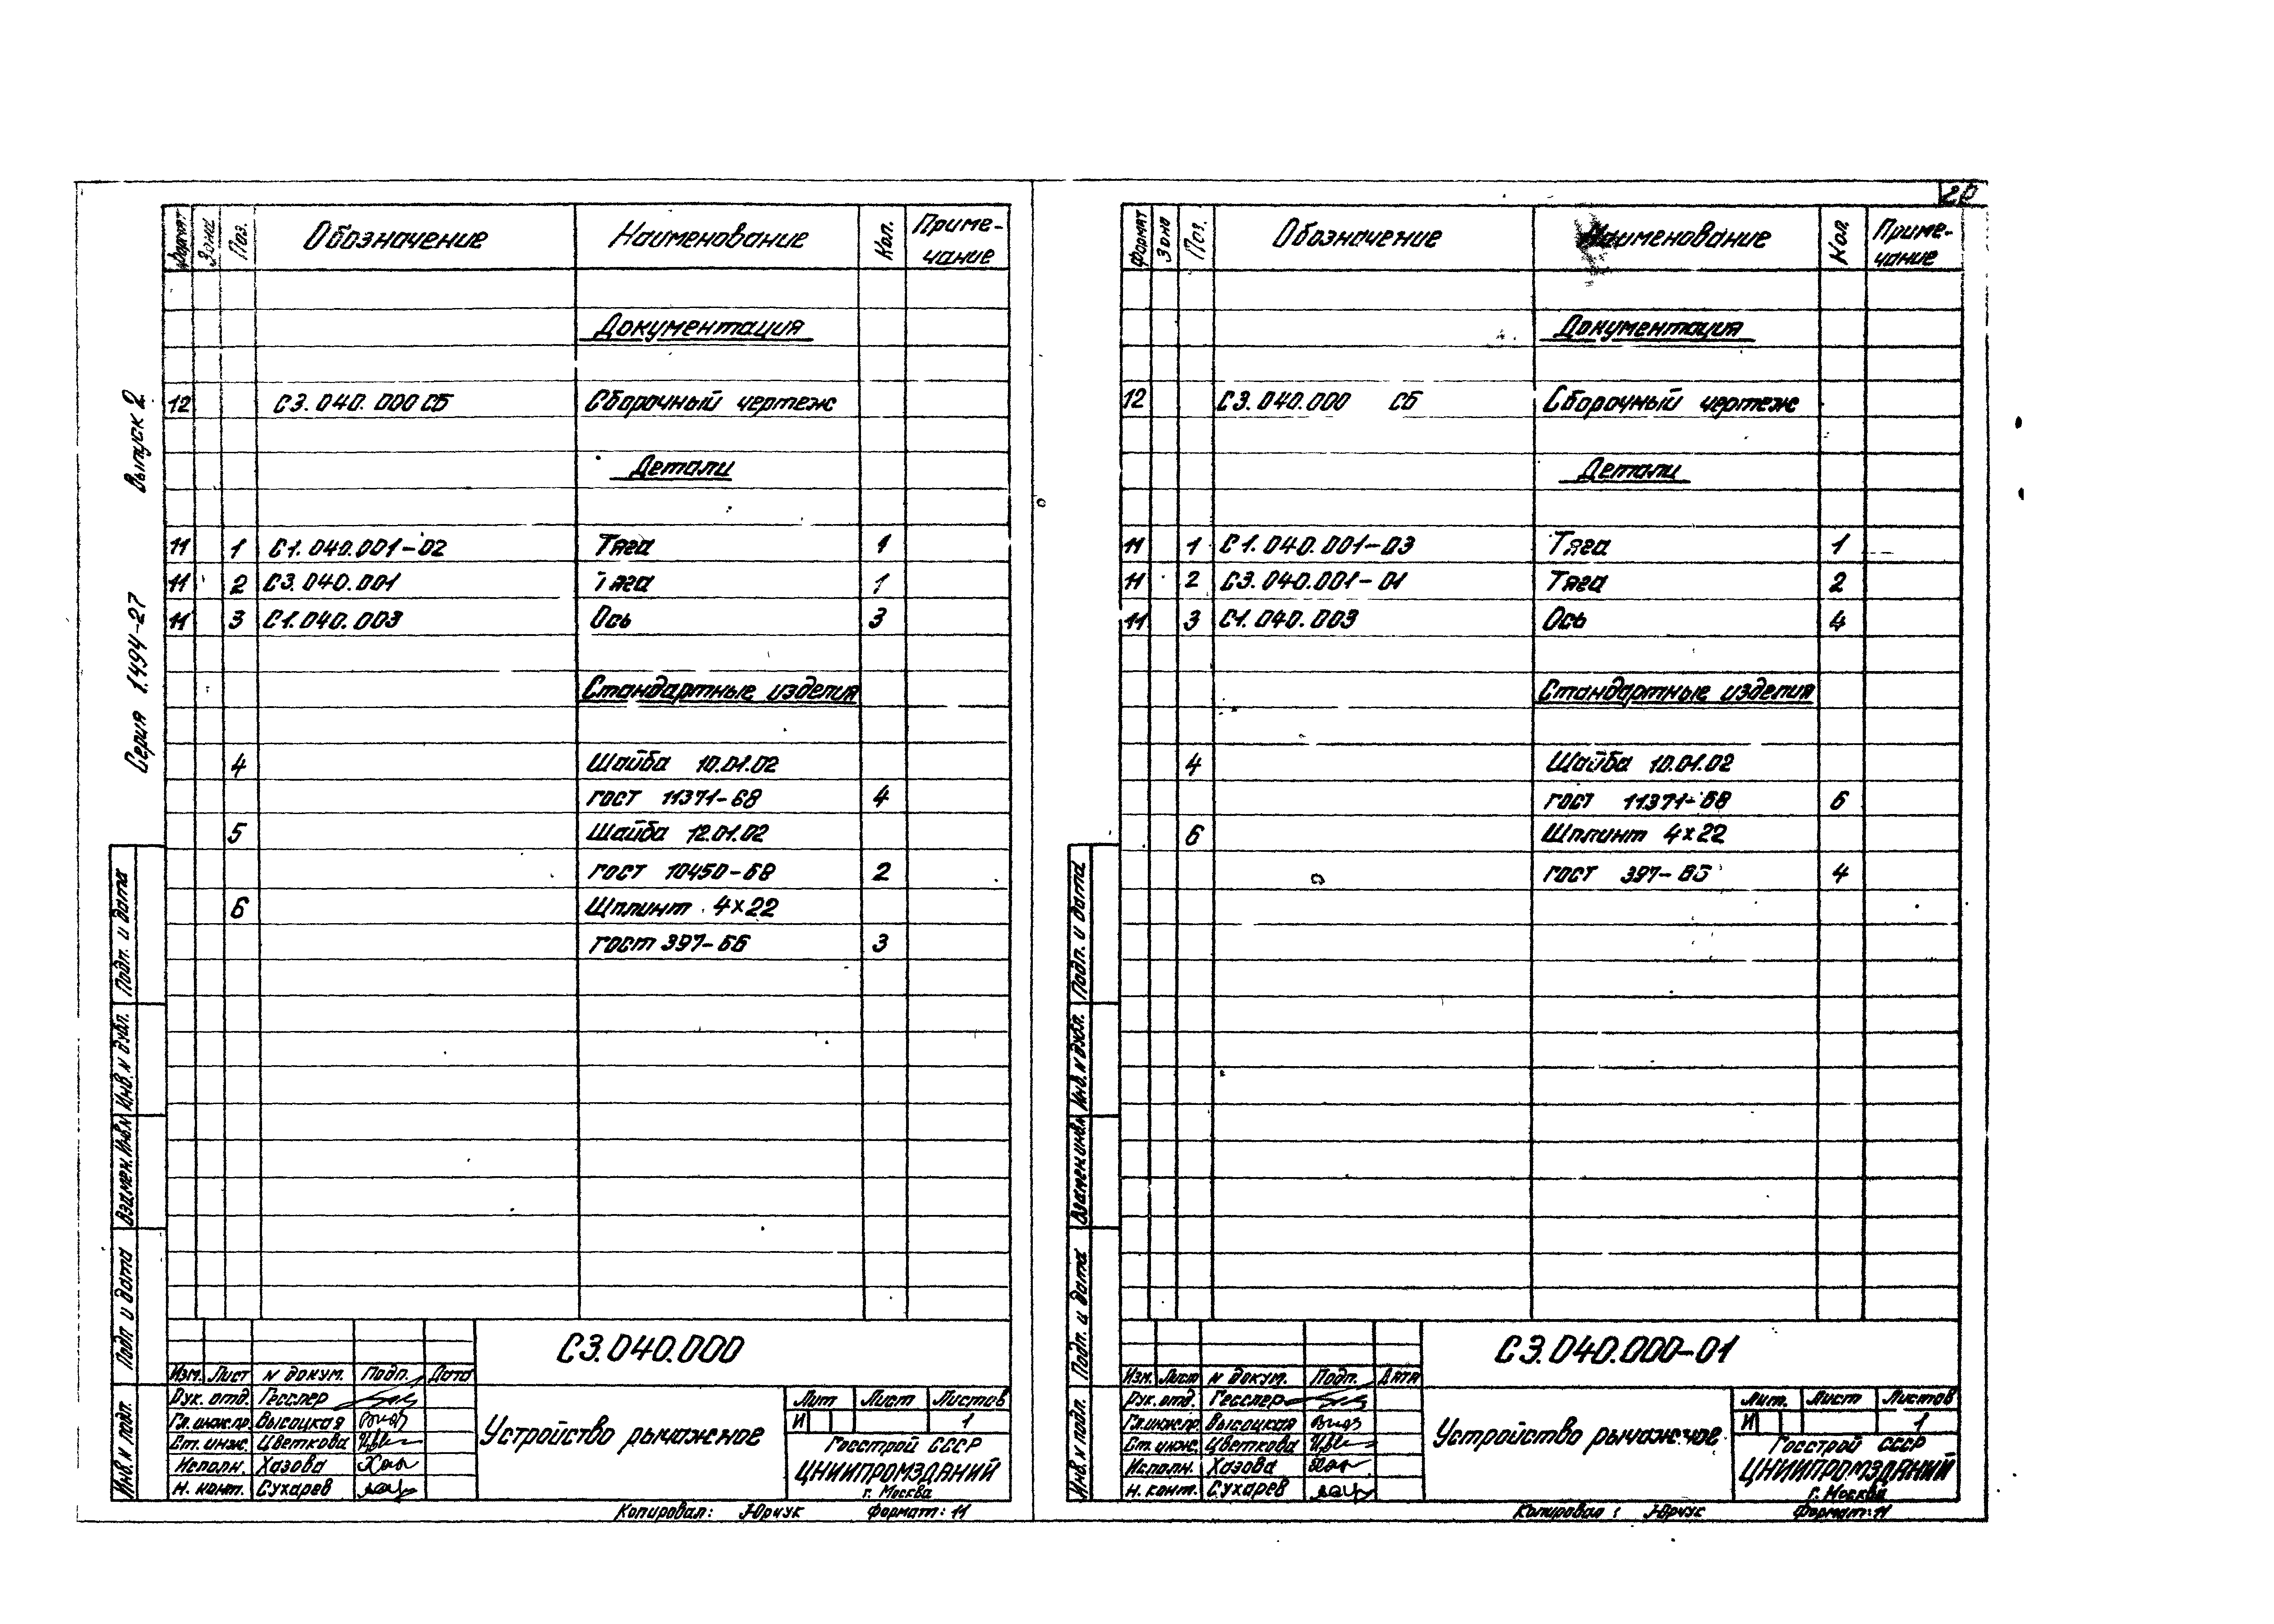 20
Серия 1.494-27 Выпуск 2
Формат Зона Поз. Обозначение Наименование Кол. Приме-
чание
Документация
12 С3.040.000 СБ Сборочный чертеж
Детали
11 1 С1.040.001-02 Тяга 1
11 2 С3.040.001 Тяга 1
11 3 С1.040.003 Ось 3
Стандартные изделия
4 Шайба 10.01.02
ГОСТ 11371-68 4
5 Шайба 12.01.02
ГОСТ 10450-68 2
6 Шплинт 4×22
ГОСТ 397-66 3
Подп. и дата
Инв. N дубл.
Взамен. Инв. N
Подп и дата
Инв. N подп.
С3.040.000
Изм. Лист N докум. Подп. Дата
Рук. отд. Гесслер
Гл. инж. пр. Высоцкая
Ст. инж. Цветкова
Исполн. Хазова
Н. конт. Сухарев
Устройство рычажное
Лит Лист Листов
И 1
Госстрой СССР
ЦНИИПРОМЗДАНИЙ
г. Москва
Копировал: Формат: 11
Формат Зона Поз. Обозначение Наименование Кол. Приме-
чание
Документация
12 С3.040.000 СБ Сборочный чертеж
Детали
11 1 С1.040.001-03 Тяга 1
11 2 С3.040.001-01 Тяга 2
11 3 С1.040.003 Ось 4
Стандартные изделия
4 Шайба 10.01.02
ГОСТ 11371-68 6
6 Шплинт 4×22
ГОСТ 397-66 4
Подп. и дата
Инв. N дубл.
Взамен инв. N
Подп. и дата
Инв. N подп.
С3.040.000-01
Изм. Лист N докум. Подп. Дата
Рук. отд. Гесслер
Гл. инж. пр. Высоцкая
Ст. инж. Цветкова
Исполн. Хазова
Н. конт. Сухарев
Устройство рычажное
Лит. Лист Листов
И 1
Госстрой СССР
ЦНИИПРОМЗДАНИЙ
г. Москва
Копировал: Формат: 11